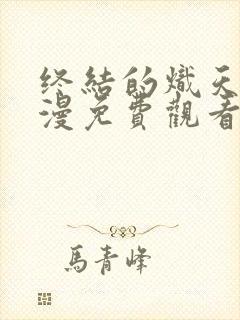 终結的熾天
漫免費觀看
馬青峰